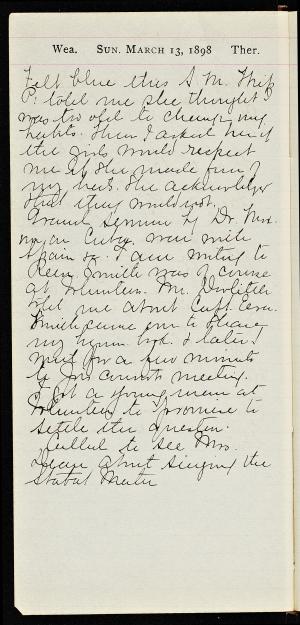 Wea. SUN. MARCH 13, 1898 Ther.
Felt blue this A.M. Miss
P. told me she thought I
was too old to change my
habits. Then I asked her if
the girls would respect
me if she made fun of
my . She acknowledged
that they would not.
Grand sermon by Dr.
on Cuba, war with
Spain &c. I am writing to
. Smith was of course
at Volunteers. Mr.
told me about Capt.
Smith came over to
my hymn bk. & later I
went for a few minutes
to meeting.
Got a young man at
Volunteers to promise to
settle the question.
Called to see Mrs.
about singing the
Stabat Mater